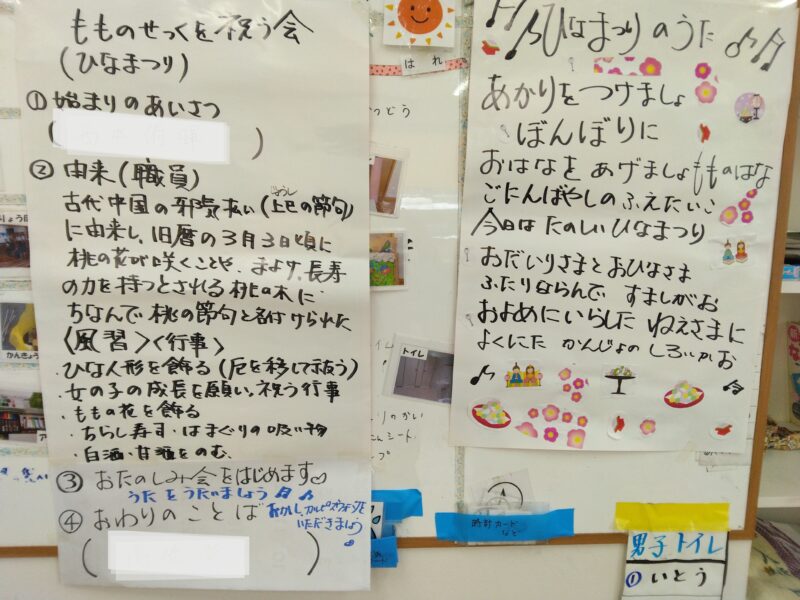 もものせっくを祝う会
(ひなまつり)
① 始まりのあいさつ
( )
② 由来(職員)
古代中国の邪気払い(上巳の節句)
じょうし
に由来し、旧暦の3月3日頃に
桃の花が咲くことや、まよけ、長寿
の力を持つとされる桃の木に
ちなんで桃の節句と名付けられた
〈風習〉〈行事〉
・ひな人形を飾る(厄を移して祓う)
・女の子の成長を願い、祝う行事
・ももの花を飾る
・ちらし寿司・はまぐりの吸い物
・白酒・甘酒をのむ
③ おたのしみ会をはじめます♡
うたをうたいましょう♫♪
④ おわりのことば
おかし、カルピスぜりーを
いただきましょう
( )
はれ
トイレ
時計カード
など
ひなまつりのうた
あかりをつけましょ
ぼんぼりに
おはなをあげましょ もものはな
ごにんばやしのふえたいこ
今日はたのしいひなまつり
おだいりさまとおひなさま
ふたりならんで すましがお
およめにいらした ねえさまに
よくにた かんじょの しろいかお
男子トイレ
① いとう